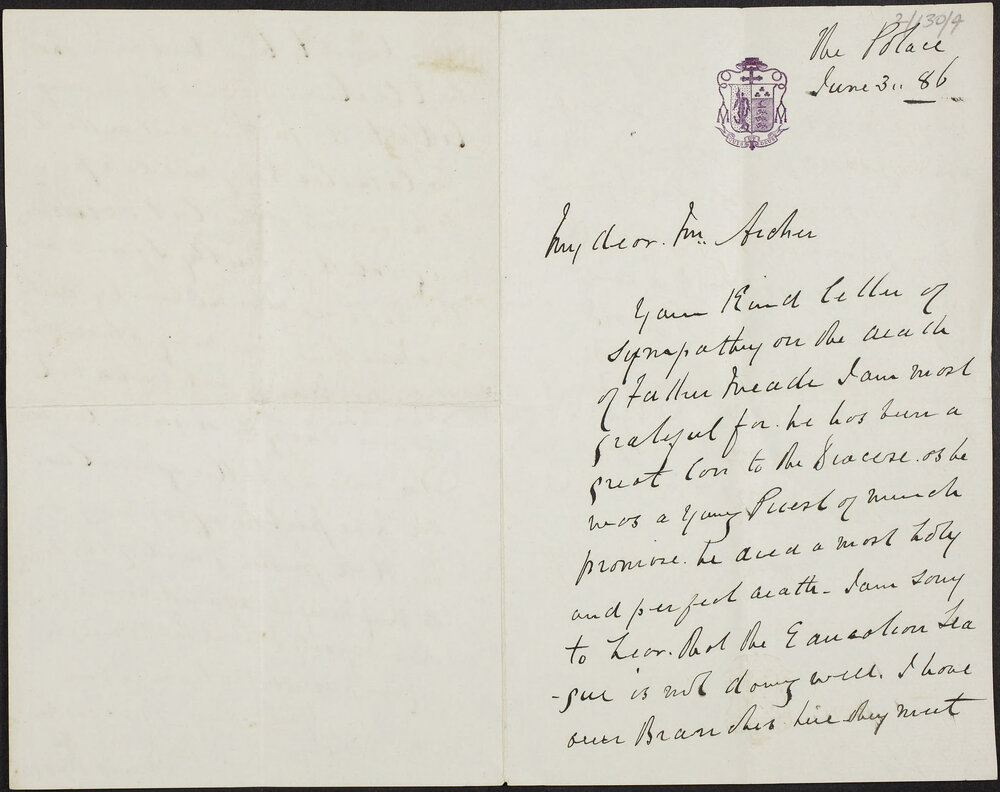 2/130/4
The Palace
June 3.. 86
My dear Mr. Archer
Your Kind letter of
sympathy on the death
of Father Meade I am most
grateful for. he has been a
great loss to the Diocese. as he
was a young Priest of much
promise. he died a most holy
and perfect death - I am sorry
to hear. that the Education Lea
-gue is not doing well. I have
our Branches here they meet